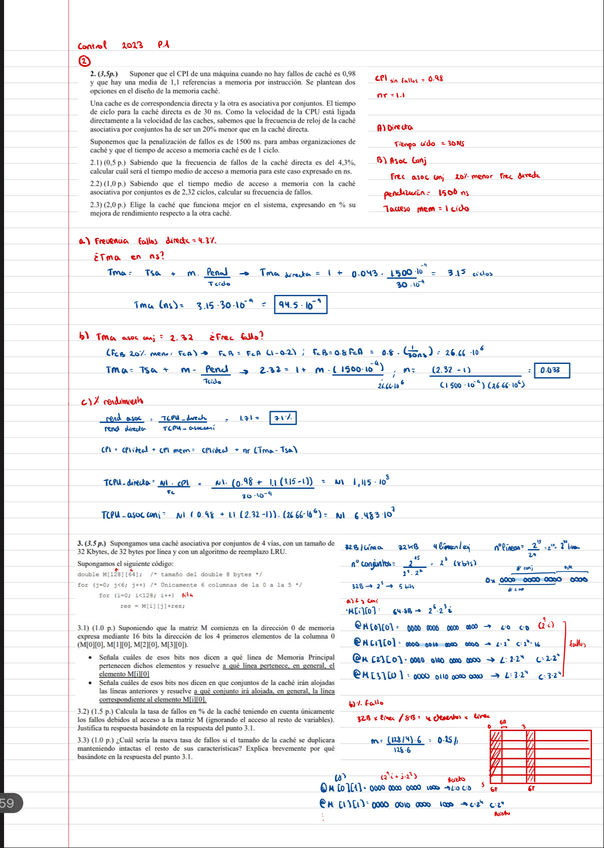 Control 2023 P.1
②
2. (3,5p.) Suponer que el CPI de una máquina cuando no hay fallos de caché es 0,98
y que hay una media de 1,1 referencias a memoria por instrucción. Se plantean dos
opciones en el diseño de la memoria caché.
Una cache es de correspondencia directa y la otra es asociativa por conjuntos. El tiempo
de ciclo para la caché directa es de 30 ns. Como la velocidad de la CPU está ligada
directamente a la velocidad de las caches, sabemos que la frecuencia de reloj de la caché
asociativa por conjuntos ha de ser un 20% menor que en la caché directa.
Suponemos que la penalización de fallos es de 1500 ns. para ambas organizaciones de
caché y que el tiempo de acceso a memoria caché es de 1 ciclo.
2.1) (0,5 p.) Sabiendo que la frecuencia de fallos de la caché directa es del 4,3%,
calcular cuál será el tiempo medio de acceso a memoria para este caso expresado en ns.
2.2) (1,0 p.) Sabiendo que el tiempo medio de acceso a memoria con la caché
asociativa por conjuntos es de 2,32 ciclos, calcular su frecuencia de fallos.
2.3) (2,0 p.) Elige la caché que funciona mejor en el sistema, expresando en % su
mejora de rendimiento respecto a la otra caché.
CPI sin fallos = 0.98
nr = 1.1
A) Directa
Tiempo ciclo = 30NS
B) Asoc Conj
Frec asoc conj 20% menor Frec directa
penalización = 1500 ns
Tacceso mem = 1 ciclo
a) Frecuencia fallos directa = 4.3%
¿Tma en ns?
Tma = Tsa + m · Penal / Tciclo → Tma directa = 1 + 0.043 · 1500·10⁻⁹ / 30·10⁻⁹ = 3.15 ciclos
Tma (ns) = 3.15·30·10⁻⁹ = 94.5·10⁻⁹
b) Tma asoc conj = 2.32 ¿Frec fallo?
(FcB 20% menor FcA) → FcB = FcA (1-0.2) ; FcB = 0.8 FcA = 0.8 · (1/30ns) = 26.66·10⁶
Tma = Tsa + m · Penal / Tciclo → 2.32 = 1 + m · (1500·10⁻⁹) / 26.66·10⁶ ; m = (2.32 - 1) / (1500·10⁻⁹)(26.66·10⁶) = 0.033
c) % rendimiento
rend asoc / rend directa = TCPU_directa / TCPU_asocconj = 1.71 = 71%
CPI = CPIideal + CPI mem = CPIideal + nr (Tma - Tsa)
TCPU_directa = NI · CPI / Fc = NI · (0.98 + 1.1 (3.15-1)) / 30·10⁻⁹ = NI 1,115·10⁸
TCPU_asoc conj = NI (0.98 + 1.1 (2.32-1)) · (26.66·10⁶) = NI 6.483·10⁷
3. (3.5 p.) Supongamos una caché asociativa por conjuntos de 4 vías, con un tamaño de
32 Kbytes, de 32 bytes por línea y con un algoritmo de reemplazo LRU.
Supongamos el siguiente código:
double M[128][64]; /* tamaño del double 8 bytes */
for (j=0; j<6; j++) /* Únicamente 6 columnas de la 0 a la 5 */
for (i=0; i<128; i++)
res = M[i][j]+res;
3.1) (1.0 p.) Suponiendo que la matriz M comienza en la dirección 0 de memoria
expresa mediante 16 bits la dirección de los 4 primeros elementos de la columna 0
(M[0][0], M[1][0], M[2][0], M[3][0]).
• Señala cuáles de esos bits nos dicen a qué línea de Memoria Principal
pertenecen dichos elementos y resuelve a qué línea pertenece, en general, el
elemento M[i][0]
• Señala cuáles de esos bits nos dicen en que conjuntos de caché irán alojadas
las líneas anteriores y resuelve a qué conjunto irá alojada, en general, la línea
correspondiente al elemento M[i][0].
3.2) (1.5 p.) Calcula la tasa de fallos en % de la caché teniendo en cuenta únicamente
los fallos debidos al acceso a la matriz M (ignorando el acceso al resto de variables).
Justifica tu respuesta basándote en la respuesta del punto 3.1.
3.3) (1.0 p.) ¿Cuál sería la nueva tasa de fallos si el tamaño de la caché se duplicara
manteniendo intactas el resto de sus características? Explica brevemente por qué
basándote en la respuesta del punto 3.1.
32B/línea 32KB 4 líneas/cj
32B → 2⁵ → 5 bits
M[i][0] = 64·8B → 2⁶·2³ i
@M[0][0] = 0000 0000 0000 0000 → L:0 C:0
fallos
b) % Fallo
32B x línea / 8B = 4 elementos x línea
m = (128/4)·6 / 128·6 = 0.25%
@M[0][1] = 0000 0000 0000 1000 → L:0 C:0
Acierto
@M[1][1] = 0000 0010 0000 1000 → L:2⁴ C:2⁴
Acierto
59